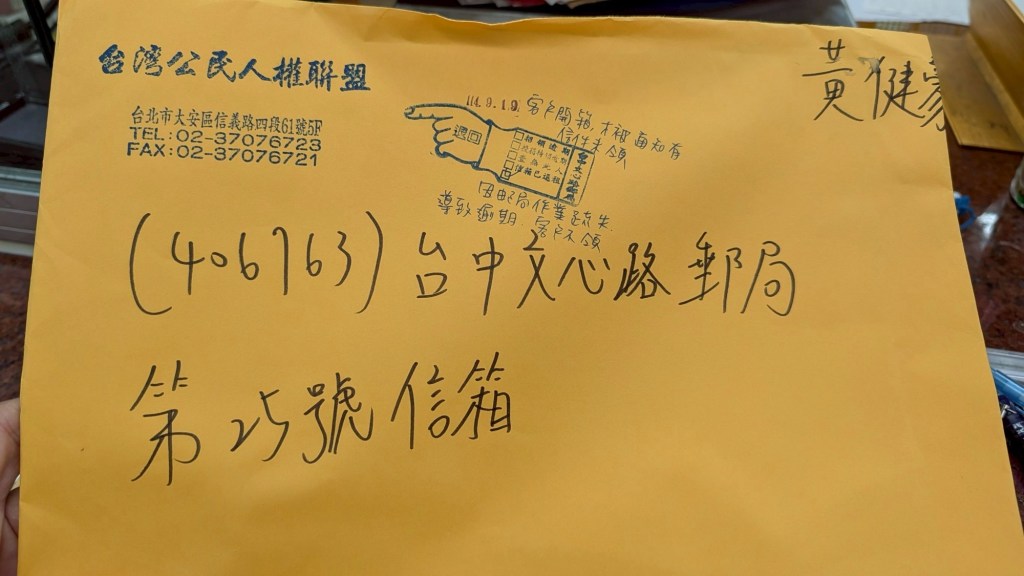 台灣公民人權聯盟
台北市大安區信義路四段61號5F
TEL:02-37076723
FAX:02-37076721
黃健豪
114.9.19 客戶開箱才被通知有
信件未領
退回
招領逾期
查無此人
信箱已退租
因郵局作業疏失
導致逾期,客戶不領
(406763) 台中文心路郵局
第25號信箱